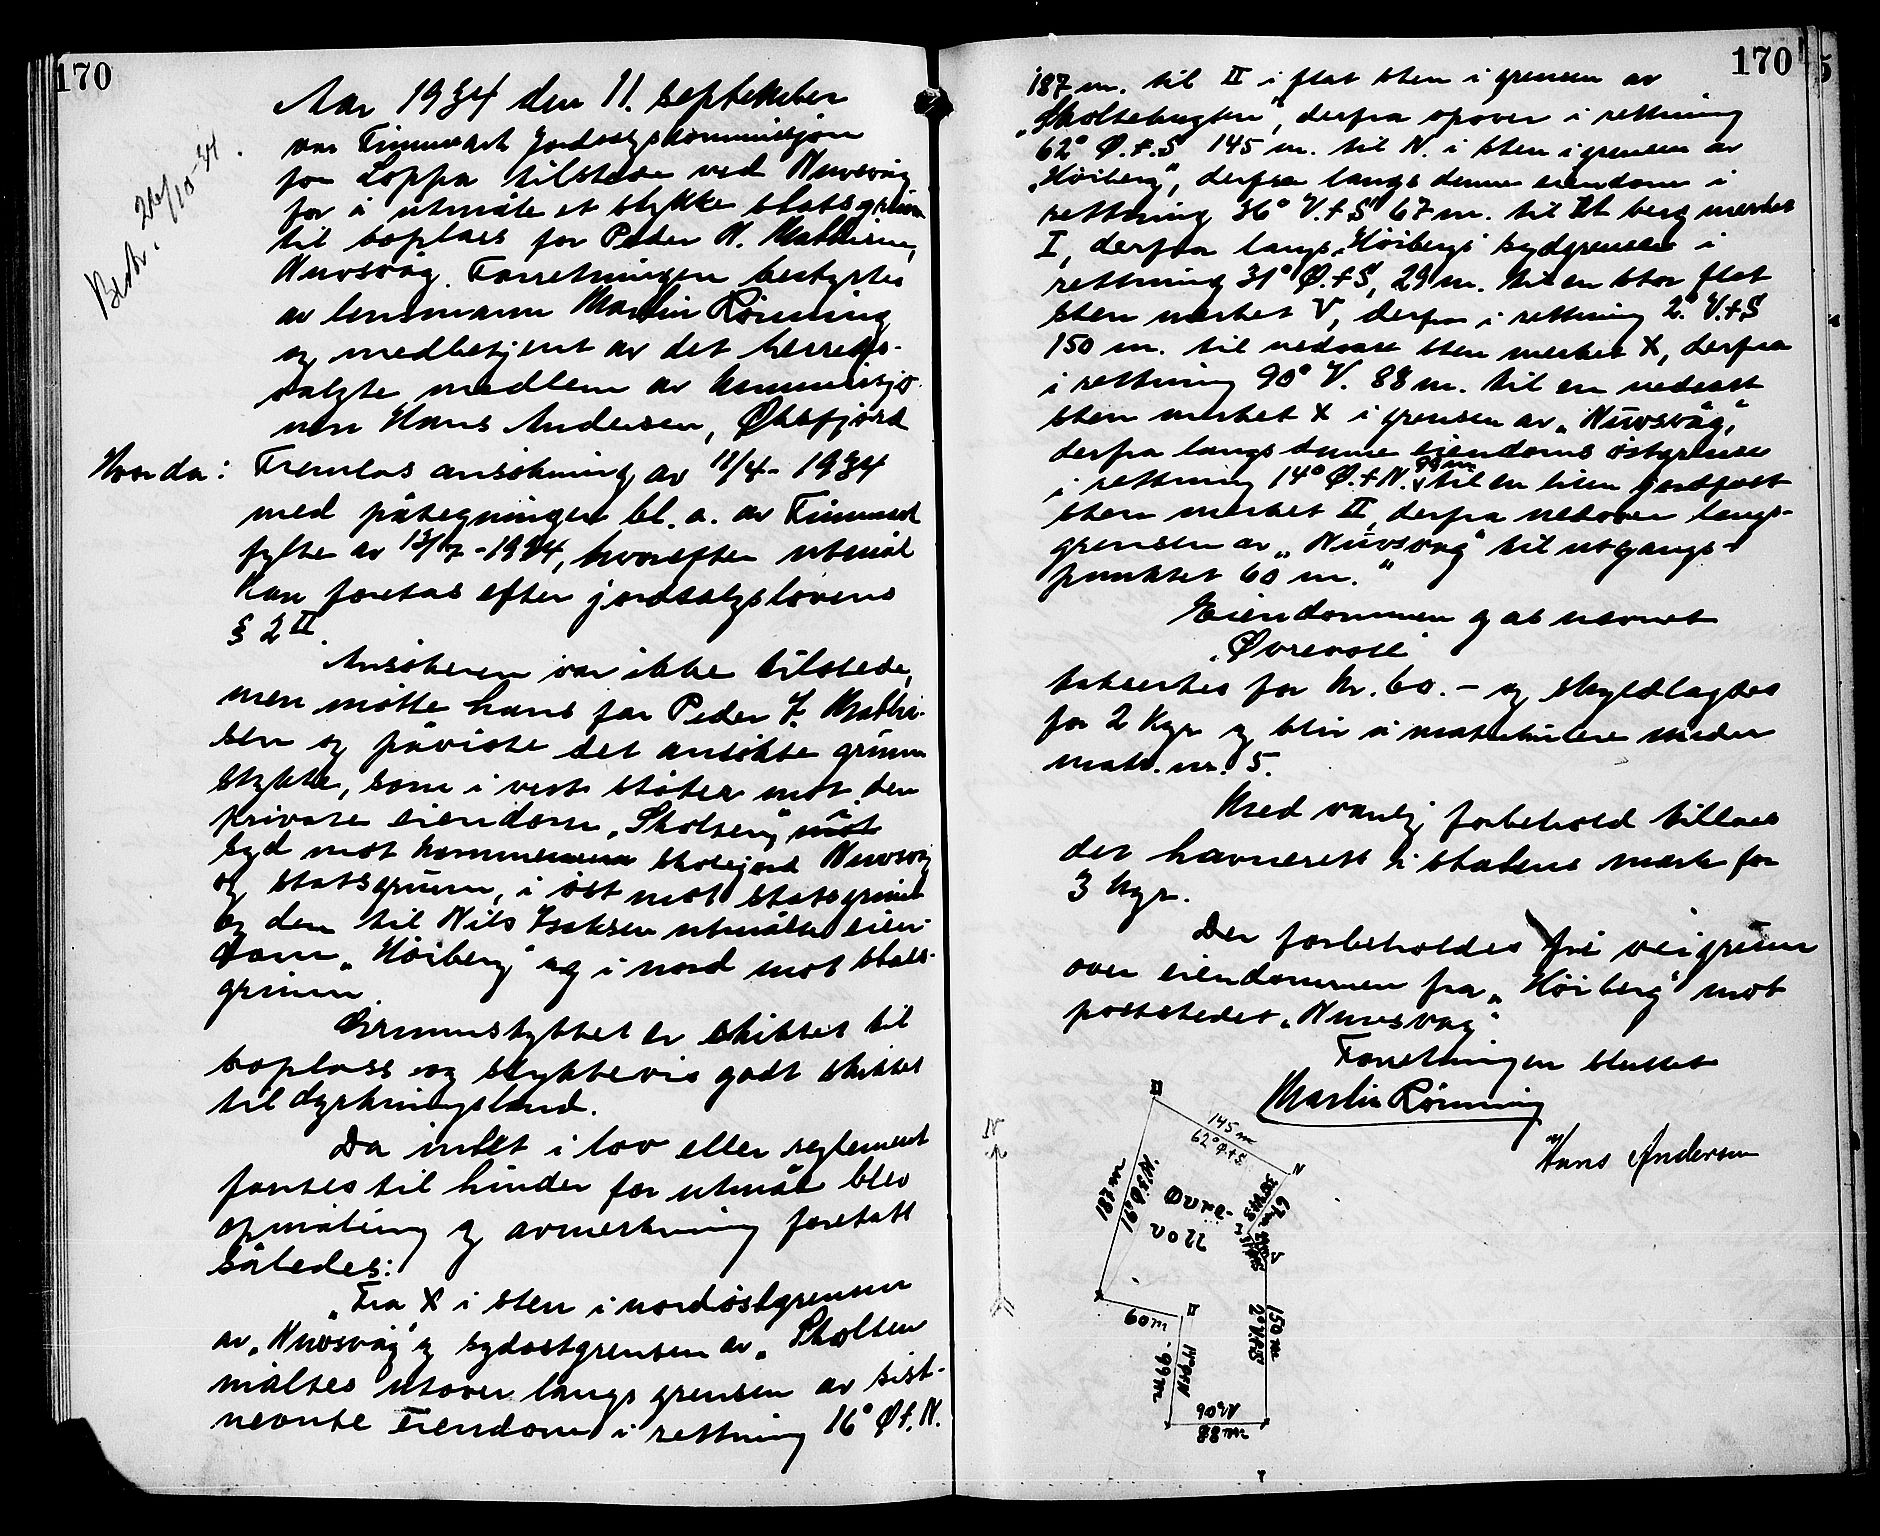 170
Aar 1934 den 11. september
var Finnmark Jordsalgskommisjon
for Loppa tilstede ved Nuvsvåg
for å utmåle et stykke statsgrunn
til boplass for Peder N. Mathisen,
Nuvsvåg. Forretningen bestyrtes
av lensmann Martin Rønning
og medbetjent av det herreds-
valgte medlem av kommisjo-
nen Hans Andersen, Øksfjord
Best. 26/10-34.
Hvorda: Fremlas ansökning av 11/4-1934
med påtegninger bl. a. av Finnmark
fylke av 13/7-1934, hvorefter utmål
kan foretas efter jordsalgslovens
§ 2 II.
Ansökeren var ikke tilstede,
men møtte hans far Peder J. Mathi-
sen og påviste det ansökte grunn
stykke, som i vest støter mot den
private eiendom „Skolten", i
syd mot skolejord Nuvsvåg
og statsgrunn, i øst mot statsgrunn
og den til Nils Isaksen utmålte eien-
dom „Höiberg" og i nord mot stats-
grunn.
Grunnstykket er skikket til
boplass og stykkevis godt skikket
til dyrkningsland.
Da intet i lov eller reglement
fantes til hinder for utmål blev
opmåling og avmerkning foretatt
således:
„Fra X i sten i nordöstgrensen
av „Nuvsvåg" og sydostgrensen av „Skolten
måltes utover langs grensen av sist-
nevnte eiendom i retning 16° Ø.f.N.
170
5
187 m. til II i flat sten i grensen av
„Skoltebugten", derfra opover i retning
62° Ø.f.S 145 m. til N. i sten i grensen av
„Höiberg", derfra langs denne eiendom i
retning 36° V.f.S 67 m. til et berg merket
I, derfra langs „Höibergs sydgrense i
retning 31° Ø.f.S, 29 m. til en stor flat
sten merket V, derfra i retning 2° V.f.S
150 m. til nedsatt sten merket X, derfra
i retning 90° V. 88 m. til en nedsatt
sten merket X i grensen av „Nuvsvåg",
derfra langs denne eiendoms östgrense
i retning 14° Ø.f.N. 99 m til en liten jordfast
sten merket II, derfra nedover langs-
grensen av „Nuvsvåg" til utgangs-
punktet 60 m."
Eiendommen gat navnet
„Øvrevoll"
taksertes for kr. 60.- og skyldlagdes
for 2 kyr og blir å matrikulere under
matr. nr. 5.
Med vanlig forbehold tillaes
det havnerett i statens mark for
3 kyr.
Der forbeholdes fri veigrunn
over eiendommen fra „Höiberg" mot
poststedet „Nuvsvåg"
Forretningen sluttet
Martin Rønning
Hans Andersen
N
II
145 m
62° Ø.f.S
N
187 m
16° Ø.f.N.
Øvre-
voll
67 m
36° V.f.S
V
60 m
II
14° Ø.f.N
99 m
150 m
2° V.f.S
90° V
88 m